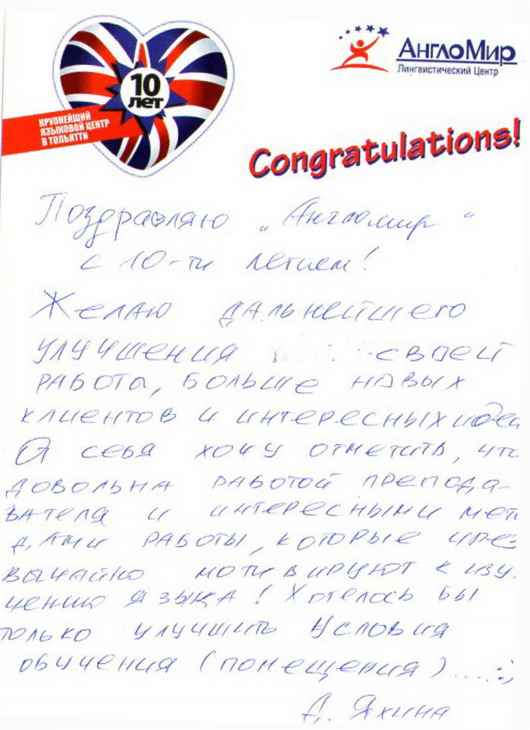 10
ЛЕТ
КРУПНЕЙШИЙ
ЯЗЫКОВОЙ ЦЕНТР
В ТОЛЬЯТТИ
АНГЛОМИР
Лингвистический Центр
Congratulations!
Поздравляю „Англомир“
с 10-ти летием!
Желаю дальнейшего
улучшения своей
работы, больше новых
клиентов и интересных идей
От себя хочу отметить, что
довольна работой препода-
вателя и интересными мето
дами работы, которые чрез
вычайно мотивируют к изу
чению языка! Хотелось бы
только улучшить условия
обучения (помещения)....:)
А. Яхина